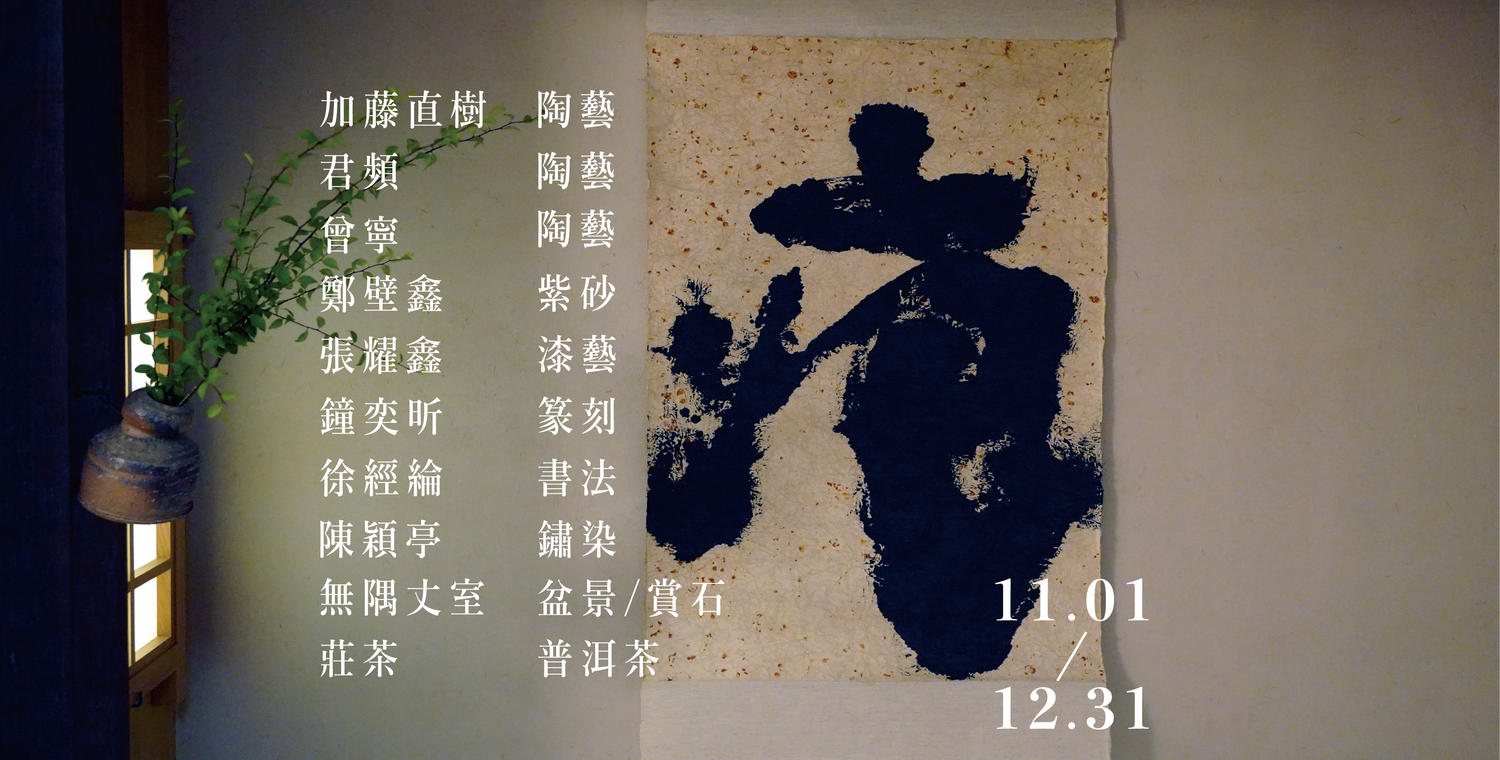 加藤直樹 陶藝
君頻 陶藝
曾寧 陶藝
鄭壁鑫 紫砂
張耀鑫 漆藝
鐘奕昕 篆刻
徐經綸 書法
陳穎亭 鏽染
無隅丈室 盆景/賞石
莊茶 普洱茶
11.01
/
12.31